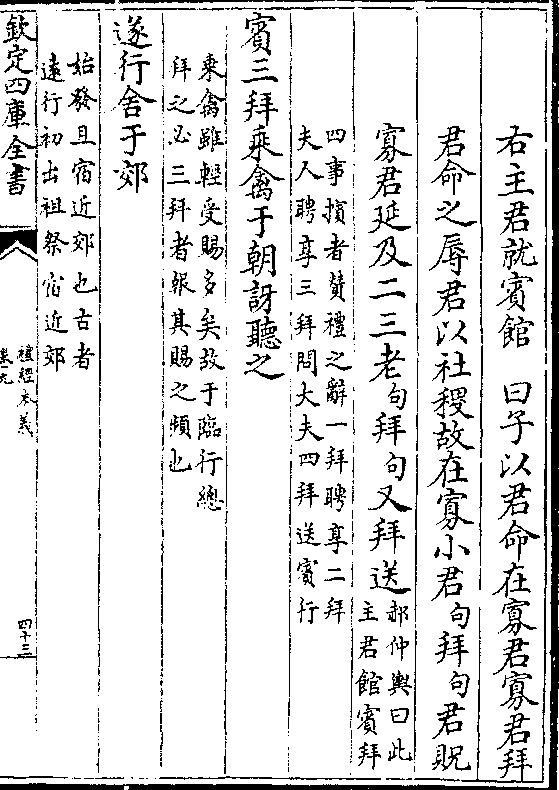 右主君就賓館　曰子以君命在寡君寡君拜
君命之辱君以社稷故在寡小君句拜句君貺
寡君延及二三老句拜句又拜送
郝仲輿曰此
主君館賓拜
四事擯者贊禮之辭一拜聘享二拜
夫人聘享三拜問大夫四拜送賓行
賓三拜乘禽于朝訝聽之
乘禽雖輕受賜多矣故于臨行總
拜之必三拜者報其賜之頻也
遂行舍于郊
始發且宿近郊也古者
遠行初出祖祭宿近郊
欽定四庫全書
禮經本義
卷九
四十三